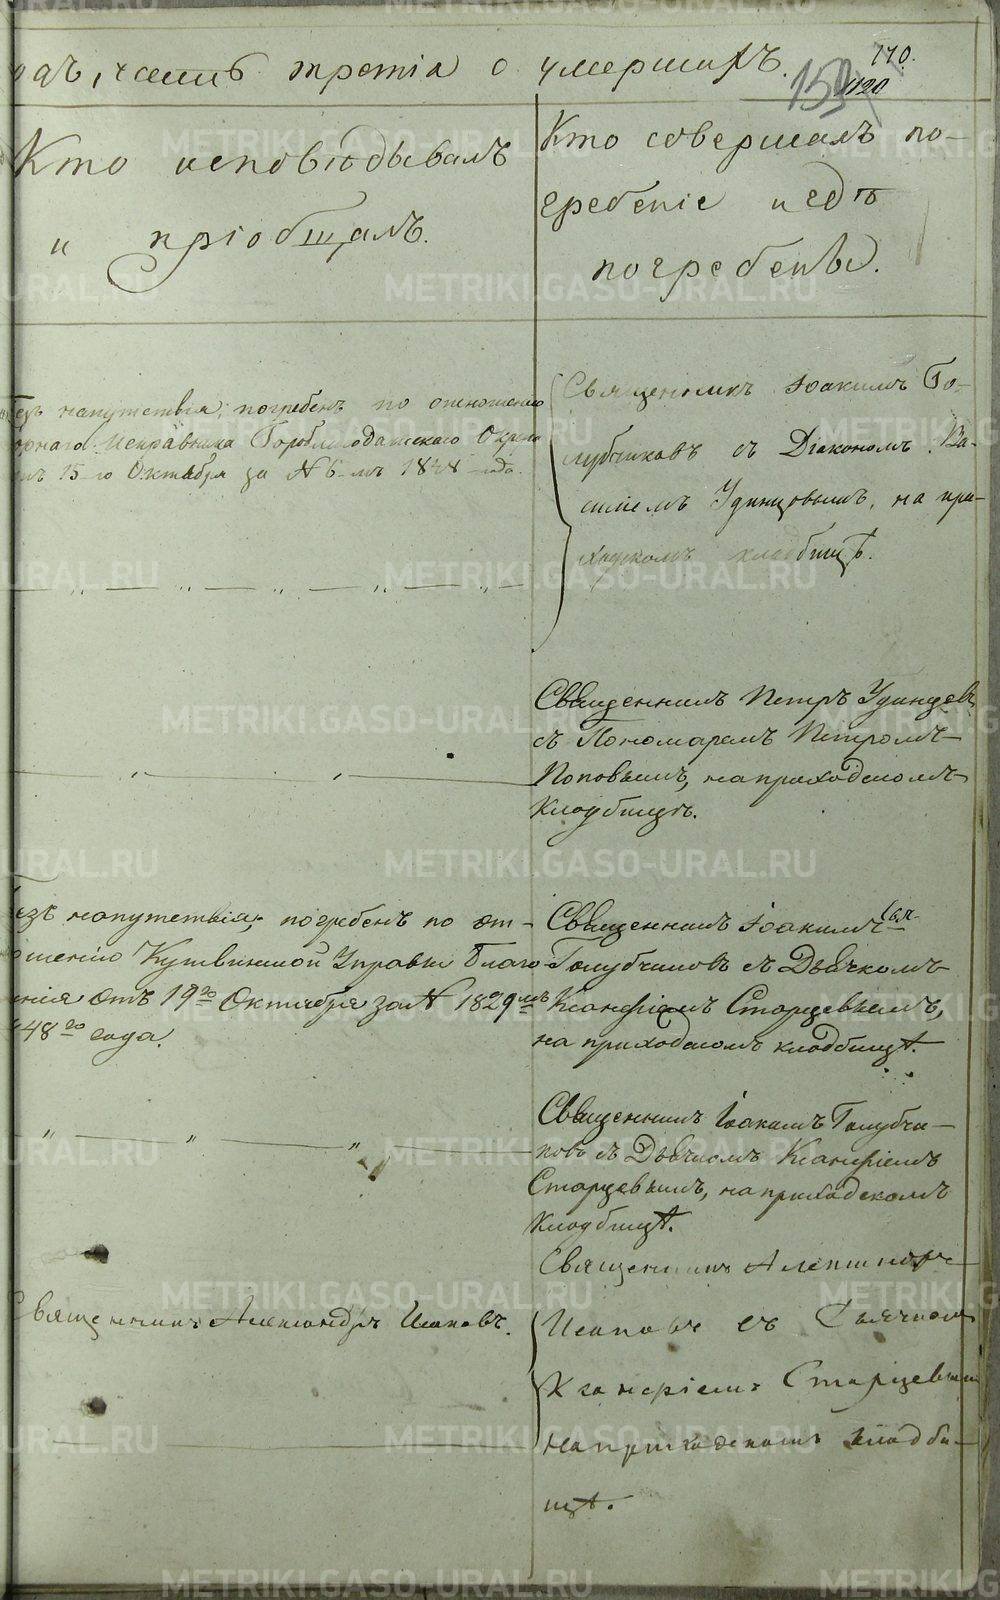 одъ, часть третія о умершихъ.
170.
159
1120
Кто исповѣдывалъ
и пріобщалъ.
Кто совершалъ по-
гребеніе и гдѣ
погребены.
безъ напутствія; погребенъ по отношенію
Горнаго Исправника Гороблагодатскаго Округа
отъ 15-го Октября за № 1848 года.
Священникъ Іоакимъ Го-
лубчиковъ съ Діакономъ Ва-
силіемъ Удинцовымъ, на при-
ходскомъ кладбищѣ.
Священникъ Петръ Удинцевъ
съ Пономаремъ Петромъ
Поповымъ, на приходскомъ
кладбищѣ.
безъ напутствія; погребенъ по от-
ношенію Кушвинской Управы Благо-
чинія отъ 19го Октября за № 1829мъ
1848го года.
Священникъ Іоакимъ
Голубчиковъ съ Дьячкомъ
Ксанфіемъ Старцевымъ,
на приходскомъ кладбищѣ.
Священникъ Іоакимъ Голубчи-
ковъ съ Дьячкомъ Ксанфіемъ
Старцевымъ, на приходскомъ
кладбищѣ.
Священникъ Александръ Исаповъ.
Священникъ Александръ
Исаповъ съ Дьячкомъ
Ксанфіемъ Старцевымъ
на приходскомъ кладби-
щѣ.
METRIKI.GASO-URAL.RU